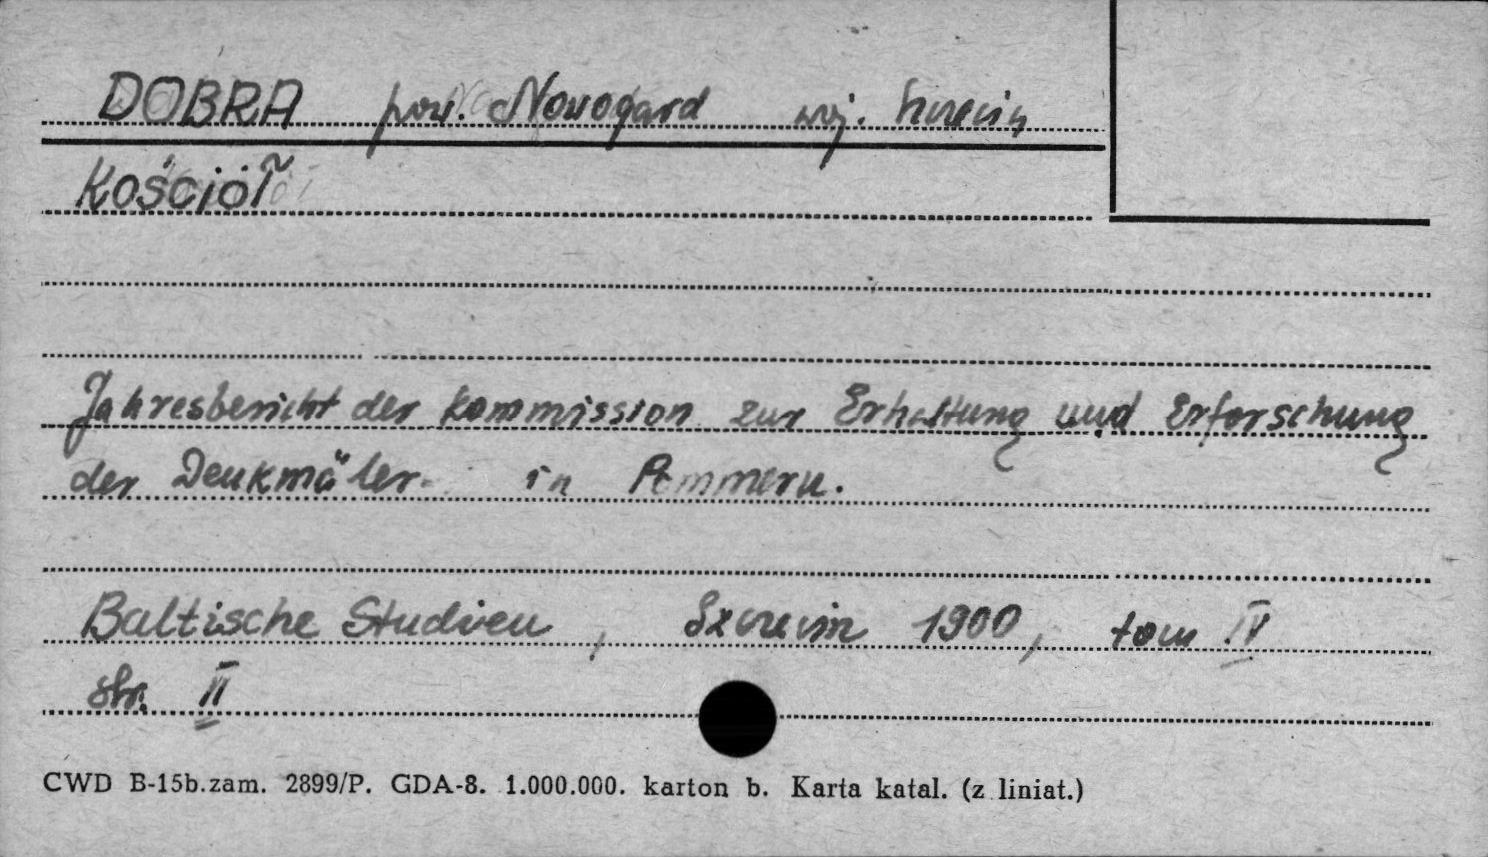 DOBRA pow. Nowogard woj. Szczecin
KOŚCIÓŁ
Jahresbericht der Kommission zur Erhaltung und Erforschung
der Denkmäler in Pommern.
Baltische Studien, Szczecin 1900, tom IV
str. II
CWD B-15b.zam. 2899/P. GDA-8. 1.000.000. karton b. Karta katal. (z liniat.)